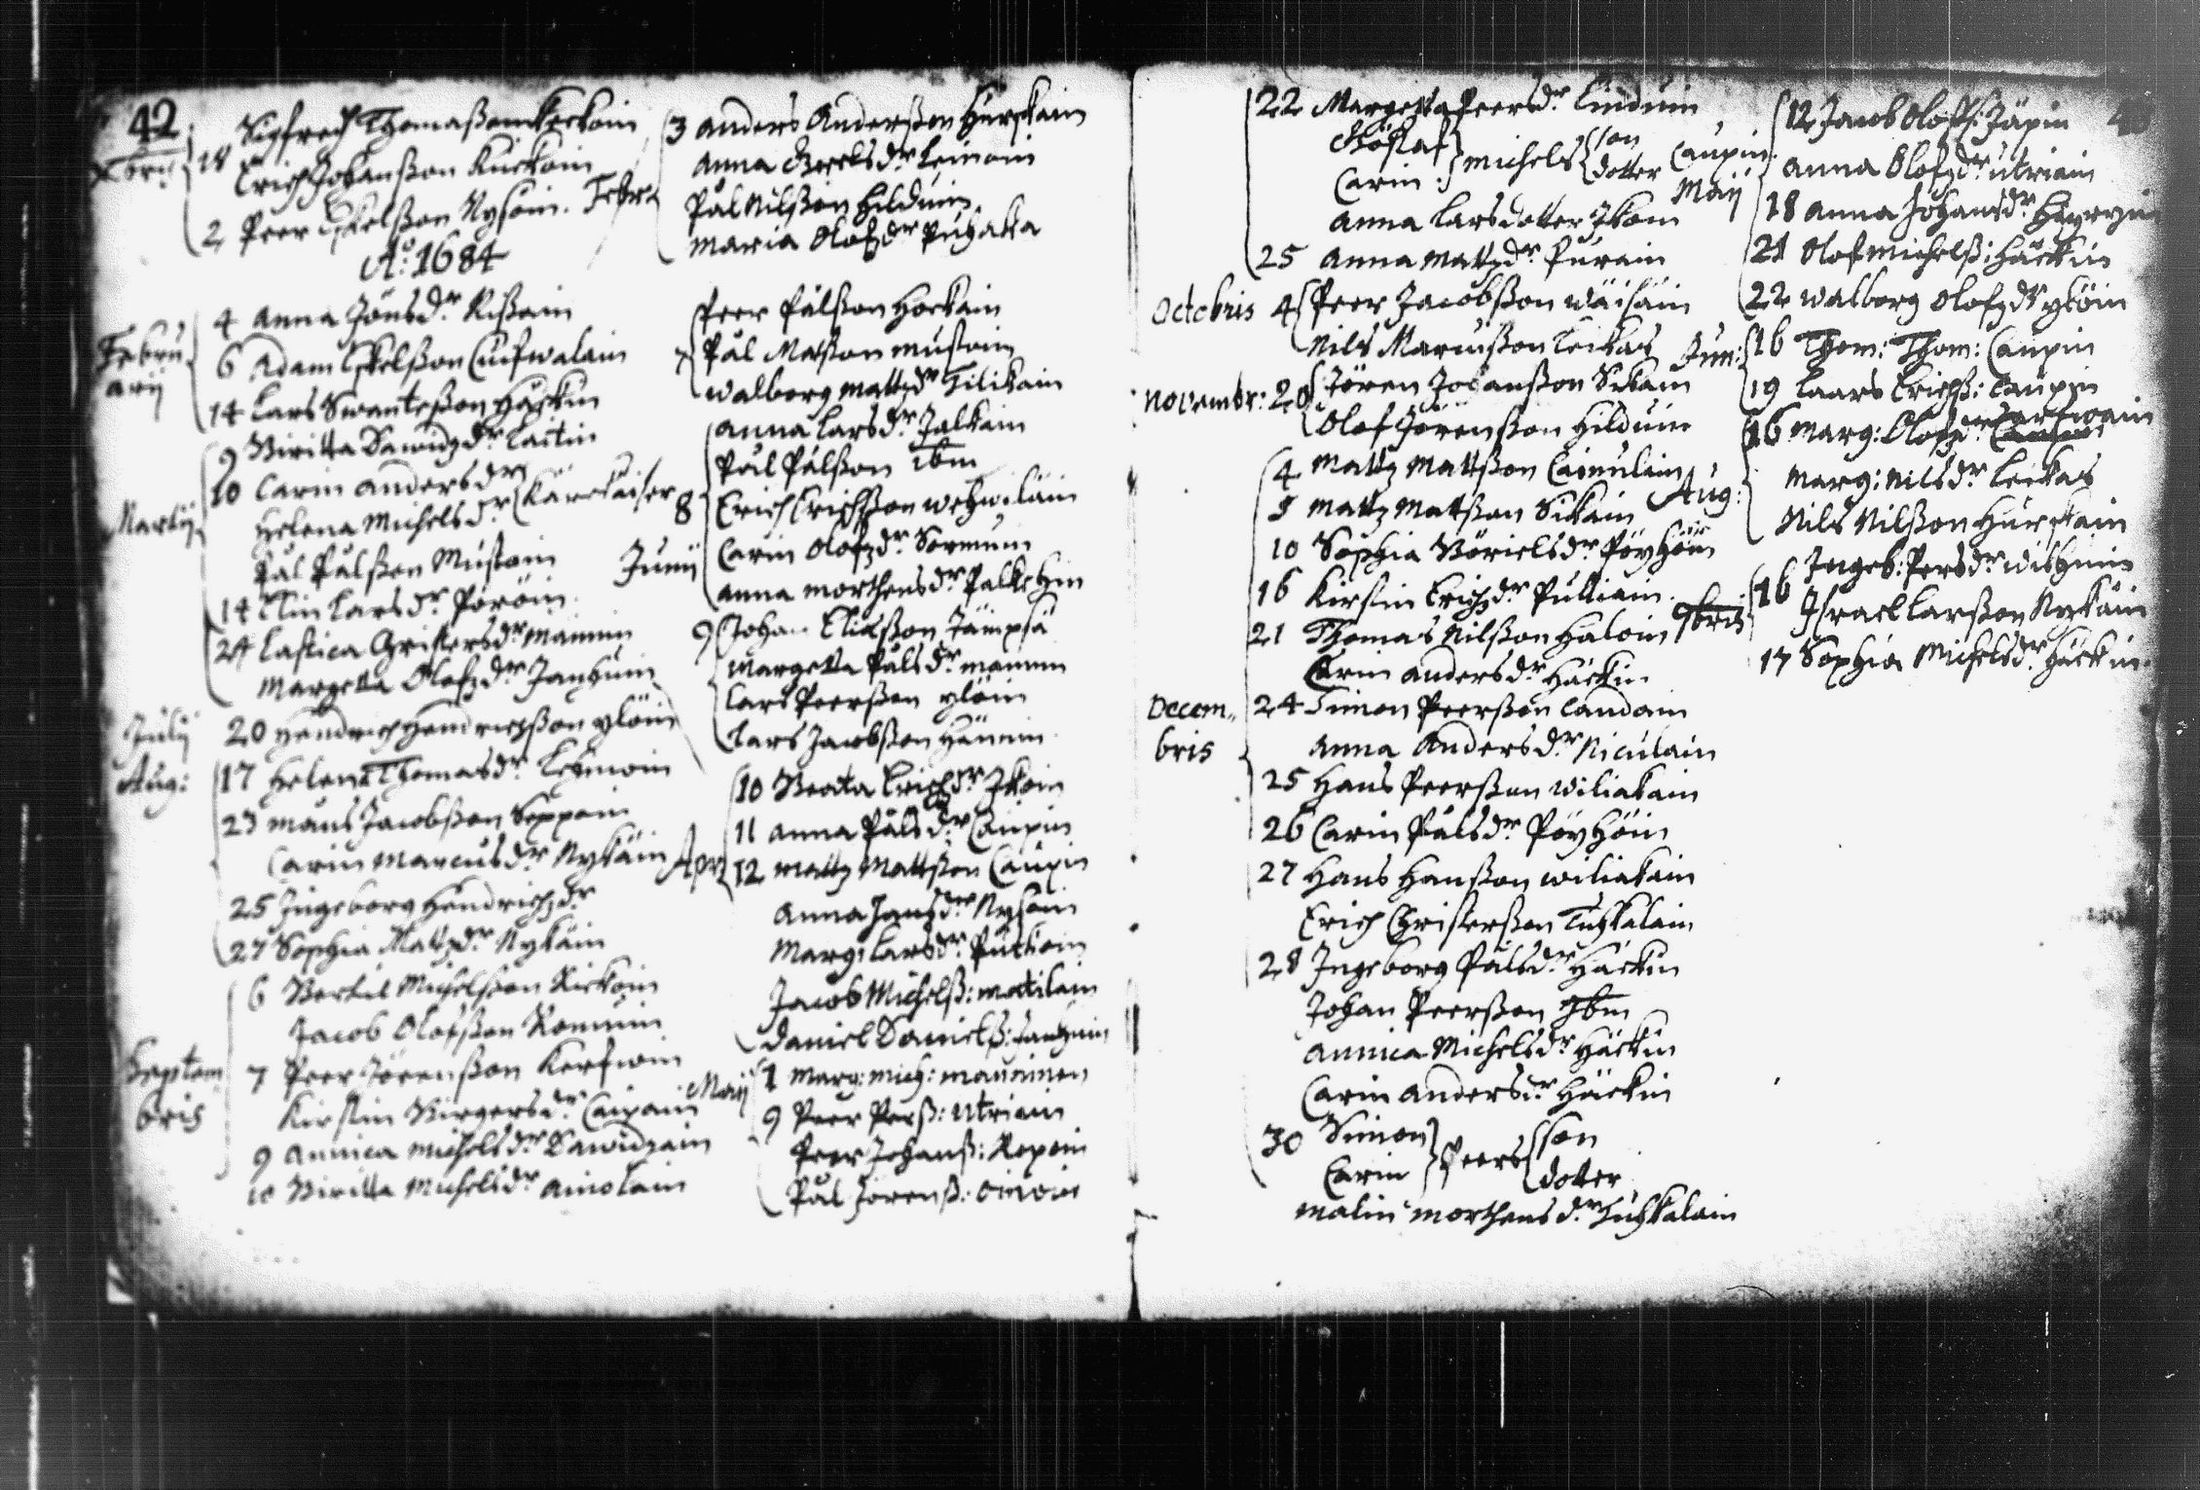 42
Xbris 18 Sigfredh Thomaßon Keckoin
Erich Johanßon Kuckoin
2 Peer Eskelßon Nysoin.
Ao: 1684
Februarij
4 Anna Jönsdr. Rißain
6 Adam Eskelßon Cuifwalain
14 Lars Swanteßon Häckin
Martij
9 Biritta Dawidzdr. Laitin
10 Carin Andersdr
Helena Michelsdr
Pål Pålßon Mustoin
14 Elin Larsdr. Pöröin
24 Christersdr. Mainin
Margetta Olofzdr. Janhuin
Julij 20 Hendrich Hendrichßon ylöin
Aug:
17 Helena Thomasdr. Leinoin
23 Måns Jacobßon Seppoin
Carin Marcusdr. Nykäin
25 Ingeborg Hendrichzdr
27 Sophia Mattzdr. Nykäin
Septembris
6 Bertil Michelßon Kickoin
Jacob Olofßon Romuin
7 Peer Jörenßon Kerfwin
Kirstin Birgersdr. Caipain
9 Annica Michelsdr. Dawidzain
10 Biritta Michelsdr. Ainolain
Febr. 3 Anders Anderßon Hurskain
Anna Leinoin
Pål Nilßon Hilduin
Maria Olofzdr. Puhakka
Peer Pålßon Horkain
7 Pål Matßon Mustoin
Walborg Mattzdr. Tilikain
Junij 8
Anna Larsdr. Jalkain
Pål Pålßon ibm
Erich Erichßon Wehwiläin
Carin Olofzdr. Sormuin
Anna Morthensdr. Palkehin
9 Johan Eliaßon Jämpsä
Margetta Pålsdr. Mainin
Lars Peerßon ylöin
Lars Jacobßon Hännin
10 Beata Erichzdr. Ikoin
11 Anna Pålsdr. Caupin
Apr. 12 Mattz Mattßon Caupin
Anna Hansdr. Nysoin
Marg: Larsdr. Puckoin
Jacob Michelß: Mattilain
Daniel Danielß: Janhuin
Maij 1 Marg: Mich: Manninen
9 Peer Perß: Utriain
Peer Johanß: Repoin
Pål Jörenß: Oinoin
22 Margetta Peersdr. Linduin
Göstaf
Carin } Michels { son
dotter Caupin
Anna Larsdotter Ikoin
25 Anna Mattzdr. Purain
Octobris 4 Peer Jacobßon Wäisäin
Nils Marcusßon Leikas
Novembr: 20 Jören Johanßon Sikain
Olof Jörenßon Hilduin
4 Mattz Mattßon Cainulain
5 Mattz Matßon Sikain
10 Sophia Börielsdr. Pöyhöin
16 Kirstin Erichzdr. Pulliain
21 Thomas Nilßon Haloin
Carin Andersdr. Häckin
Decembris
24 Simon Peerßon Laudain
Anna Andersdr. Niculain
25 Hans Peerßon Wiliakain
26 Carin Pålsdr. Pöyhöin
27 Hans Hanßon Wiliakain
Erich Christerßon Tuhkalain
28 Ingeborg Pålsdr. Häckin
Johan Peerßon Ibm
Annica Michelsdr. Häckin
Carin Andersdr. Häckin
30 Simon
Carin } Peers { son
dotter
Malin Morthensdr. Tuhkalain
Maij
12 Jacob Olofß: Jäpin
Anna Olofzdr. Utriain
18 Anna Johansdr.
21 Olof Michelß: Häckin
22 Walborg Olofzdr. ylöin
Jun: 16 Thom: Thom: Caupin
19 Laars Erichß: Caupin
Aug: 16 Marg: Olofzdr. Carfwain
Marg: Nilsdr. Leikas
Nils Nilßon Hurskain
9bris 16 Ingeb: Persdr. Wihuin
Israel Larßon Nykäin
17 Sophia Michelsdr. Häckin